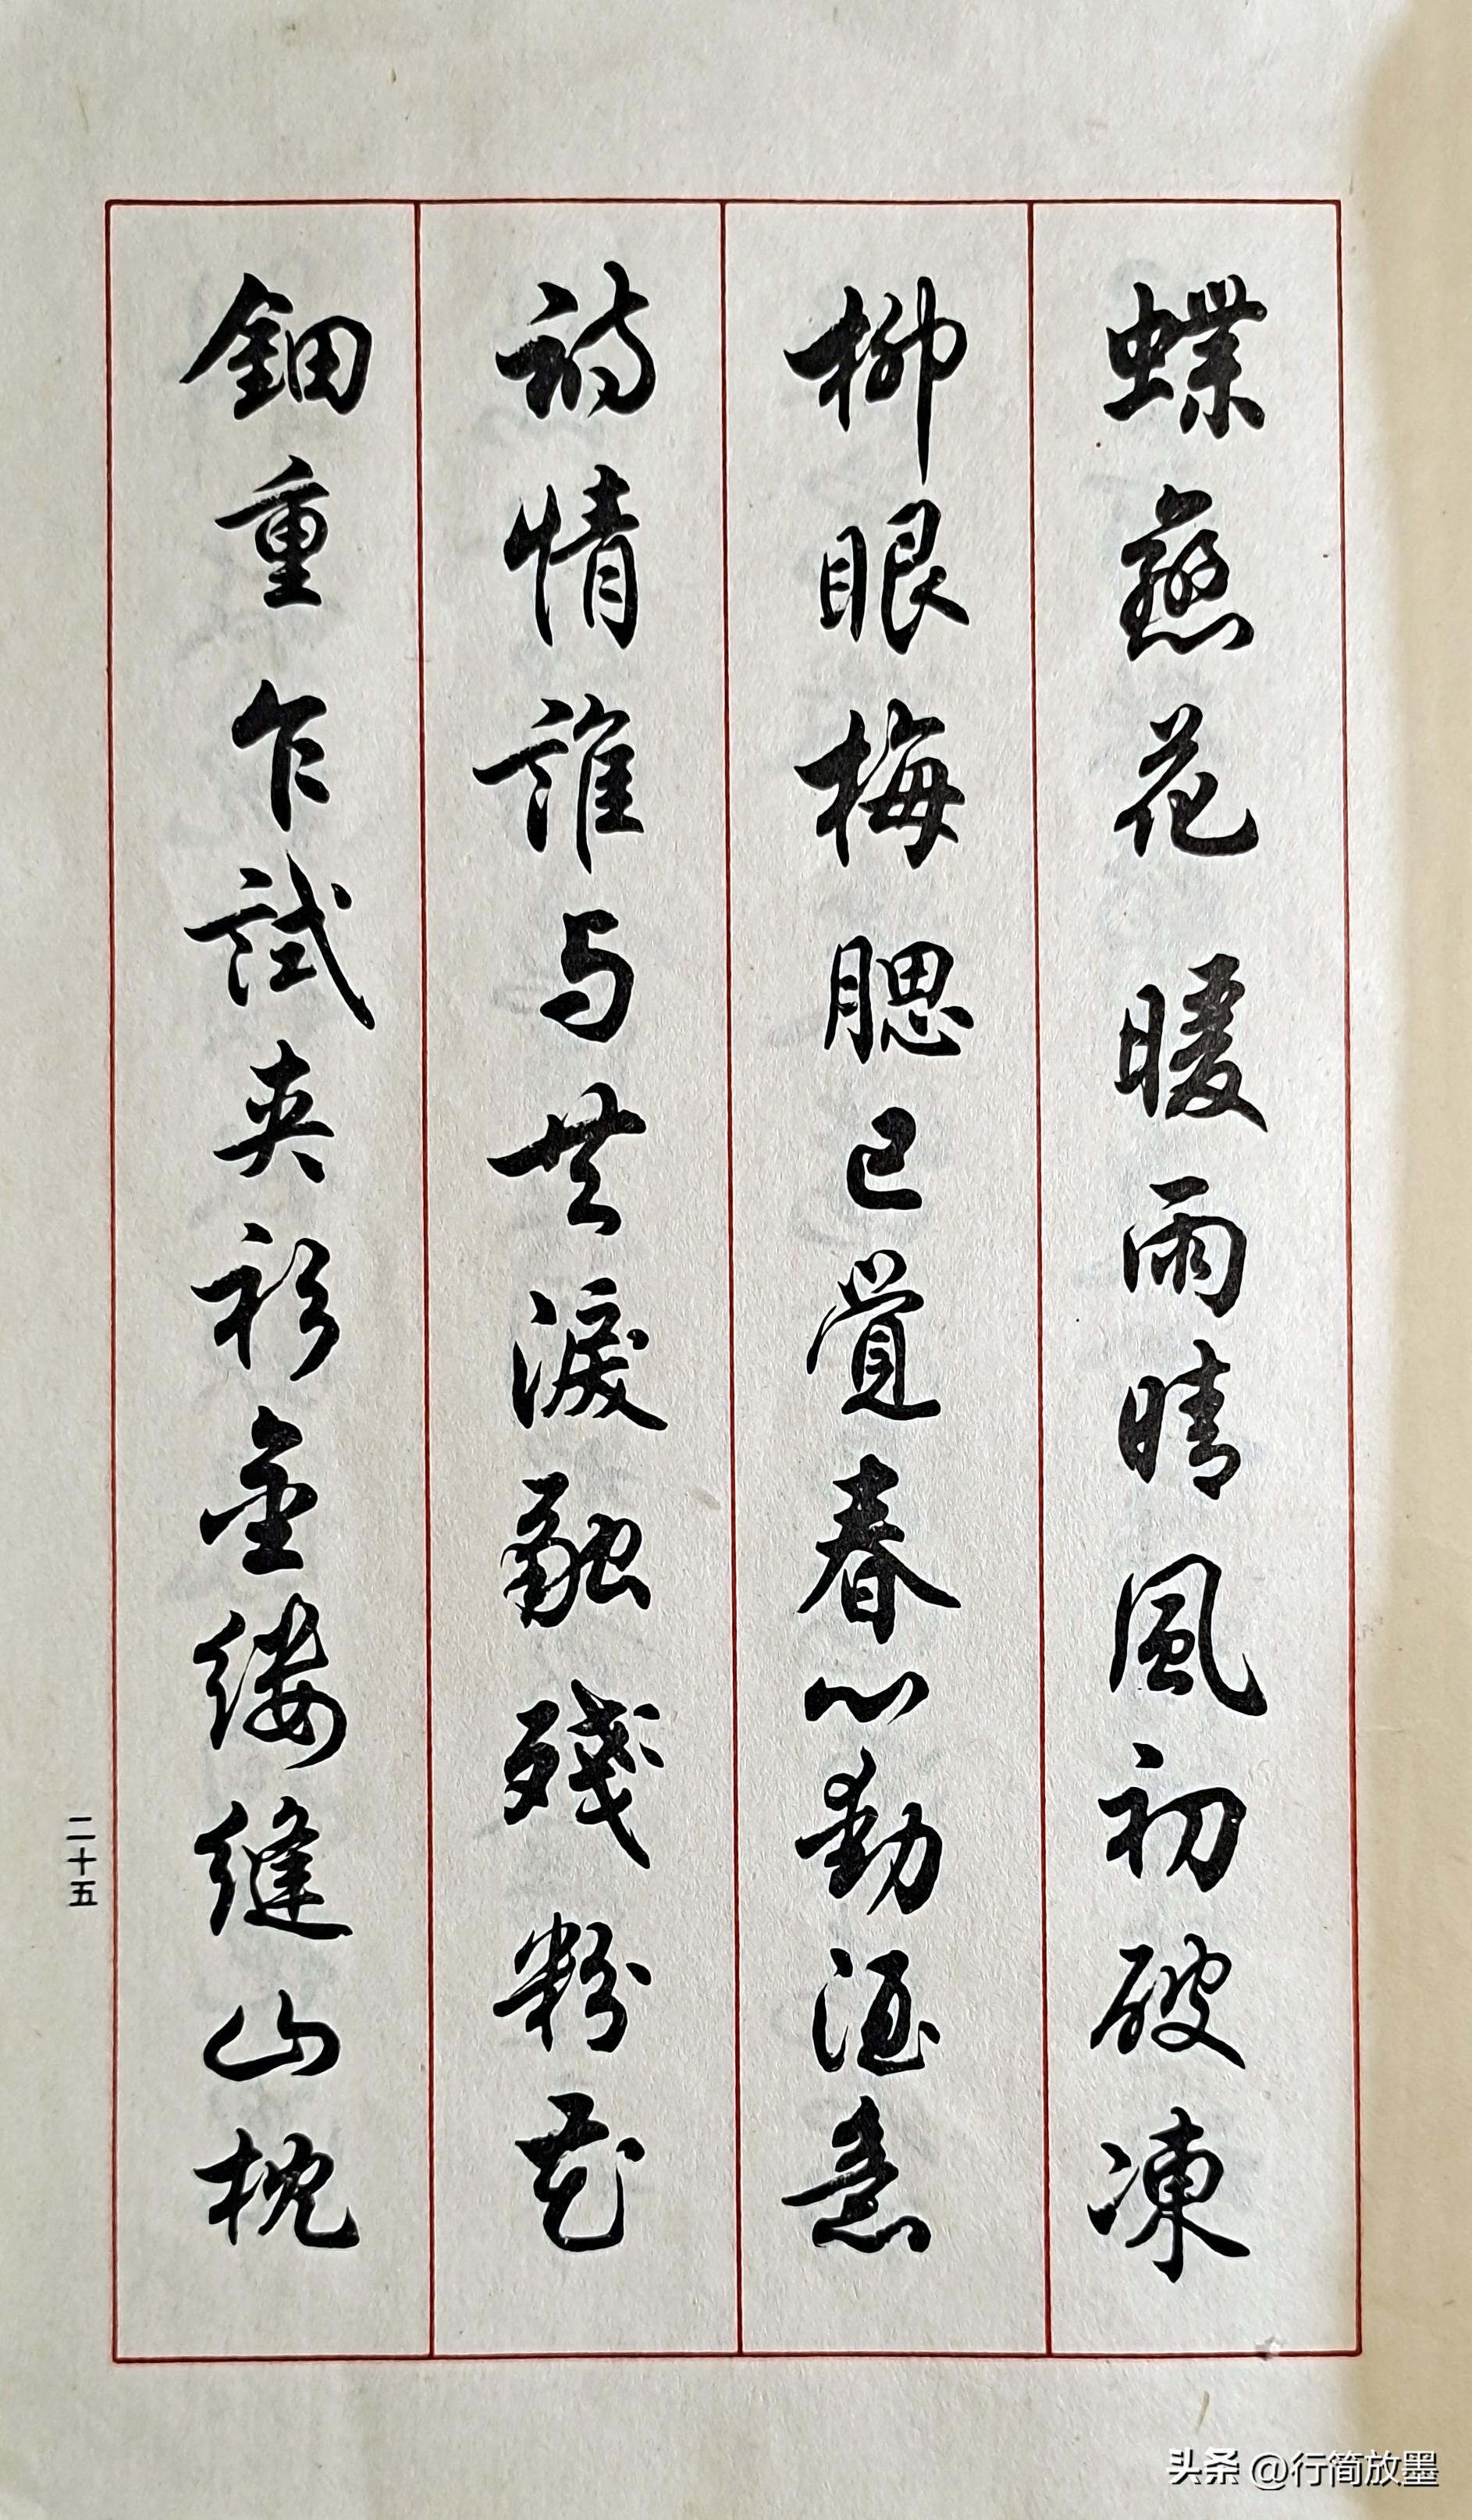 蝶戀花 暖雨晴風初破凍
柳眼梅腮已覺春心動酒意
詩情誰与共淚融殘粉花
鈿重乍試夹衫金缕縫山枕
二十五
头条 @行简放墨